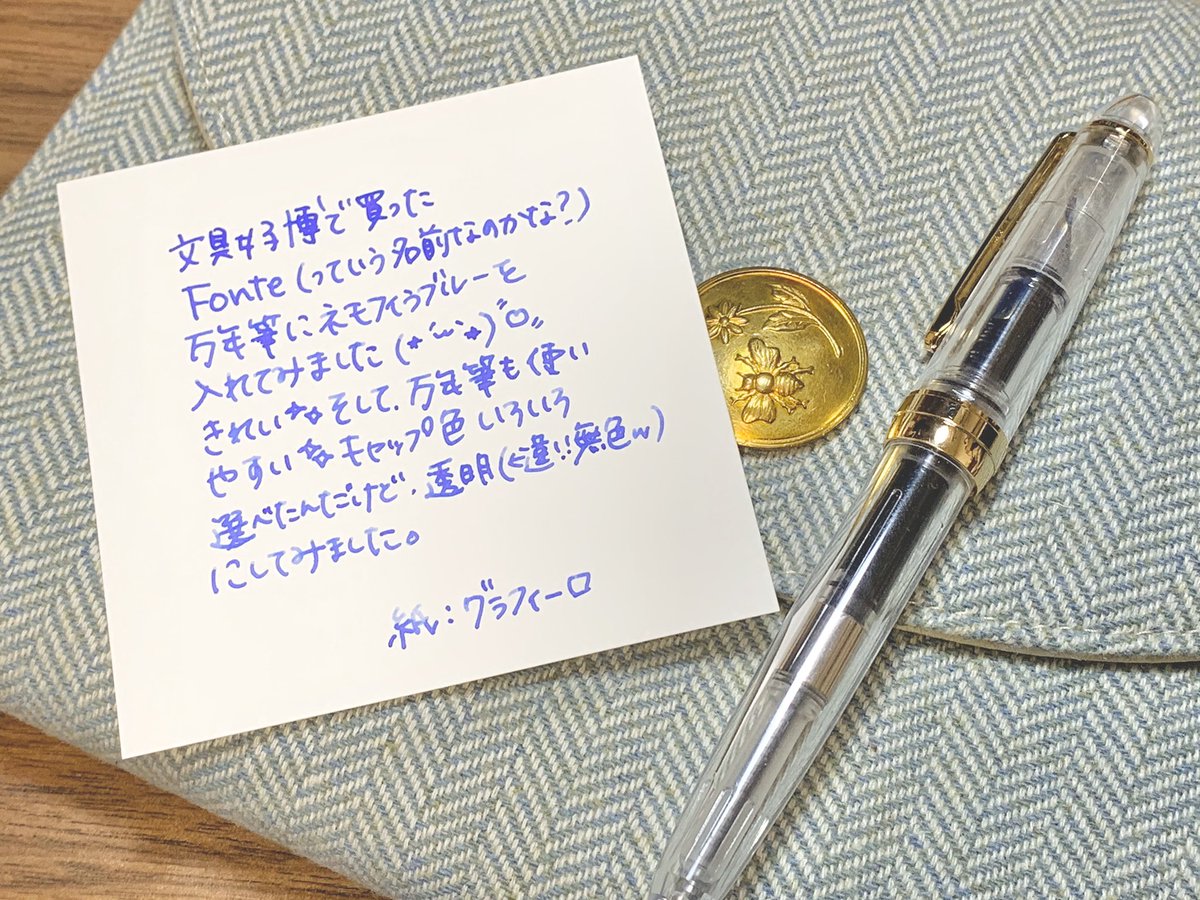 文具女子博で買った
Fonte(っていう名前なのかな?)
万年筆にネモフィラブルーを
入れてみました(*´`*)"
きれい✨そして、万年筆も使い
やすい✨キャップ色いろいろ
選べたんだけど、透明(←違!!無色w)
にしてみました。
紙:グラフィーロ